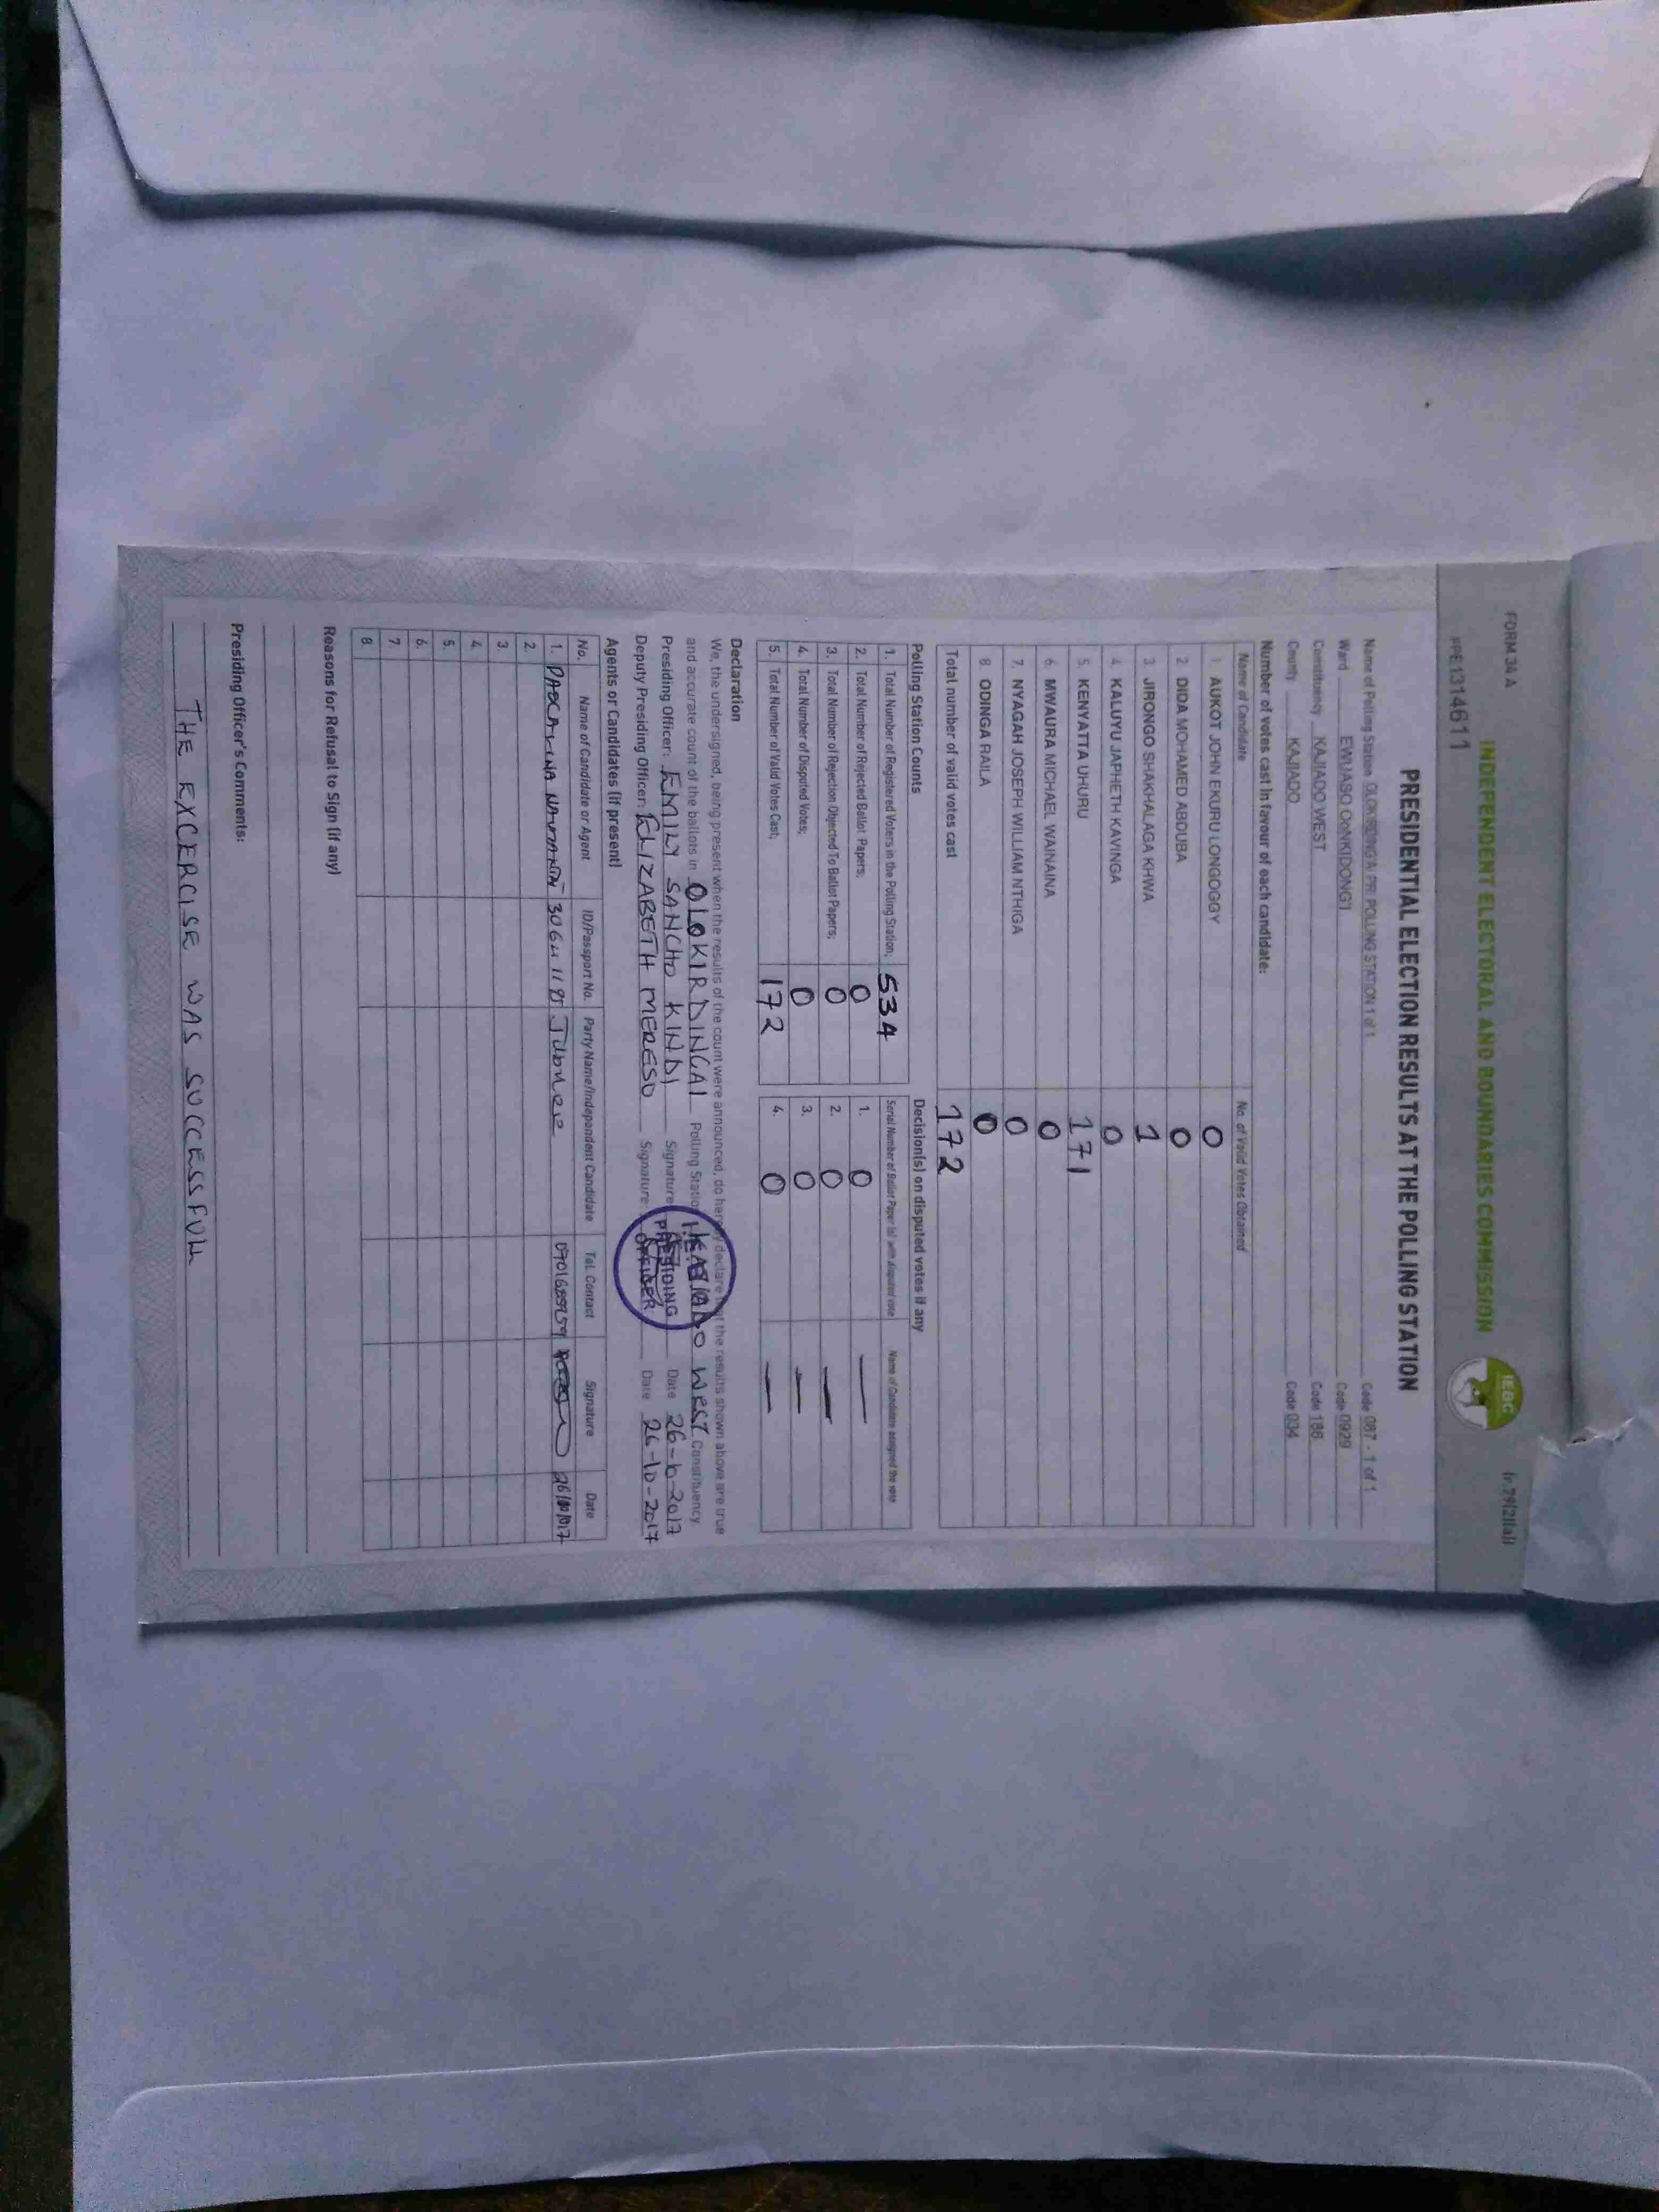 FORM 34 A
(r.79(2)(a))
INDEPENDENT ELECTORAL AND BOUNDARIES COMMISSION
IEBC
PRE1314611
PRESIDENTIAL ELECTION RESULTS AT THE POLLING STATION
Name of Polling Station OLOKIRDINGAI PR. POLLING STATION 1 of 1 Code 087 - 1 of 1
Ward EWUASO OoNKIDONG'I Code 0929
Constituency KAJIADO WEST Code 186
County KAJIADO Code 034
Number of votes cast in favour of each candidate:
Name of Candidate No. of Valid Votes Obtained
1 AUKOT JOHN EKURU LONGOGGY 0
2 DIDA MOHAMED ABDUBA 0
3 JIRONGO SHAKHALAGA KHWA 1
4 KALUYU JAPHETH KAVINGA 0
5. KENYATTA UHURU 171
6 MWAURA MICHAEL WAINAINA 0
7. NYAGAH JOSEPH WILLIAM NTHIGA 0
8 ODINGA RAILA 0
Total number of valid votes cast 172
Polling Station Counts Decision(s) on disputed votes if any
1. Total Number of Registered Voters in the Polling Station; 534 Serial Number of Ballot Paper (s) with disputed vote Name of Candidate assigned the vote
2. Total Number of Rejected Ballot Papers; 0 1. 0 —
3. Total Number of Rejection Objected To Ballot Papers; 0 2. 0 —
4. Total Number of Disputed Votes; 0 3. 0 —
5. Total Number of Valid Votes Cast; 172 4. 0 —
Declaration
We, the undersigned, being present when the results of the count were announced, do hereby declare that the results shown above are true
and accurate count of the ballots in OLOKIRDINGAI Polling Station KAJIADO WEST Constituency.
Presiding Officer: EMILY SANCHO KINDI Signature Date 26-10-2017
Deputy Presiding Officer: ELIZABETH MERESO Signature Date 26-10-2017
PRESIDING
OFFICER
Agents or Candidates (if present)
No. Name of Candidate or Agent ID/Passport No. Party Name/Independent Candidate Tel. Contact Signature Date
1. Jubilee
2.
3.
4.
5.
6.
7.
8.
Reasons for Refusal to Sign (if any)
Presiding Officer's Comments:
THE EXCERCISE WAS SUCCESSFUL